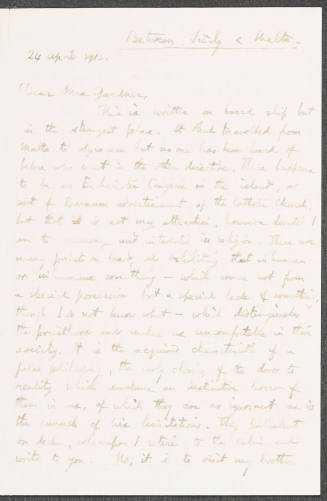 Between Sicily & Malta.
24 April 1913.
Dear Mrs. Gardner,
This is written on board ship but
in the strangest place. St Paul travelled from
Malta to Syracuse but no one has ever heard of
before who went in the other direction. There happens
to be an Eucharistic Congress in the island, a
sort of Barnum advertisement of the Catholic Church,
but that it is not my attraction, however devoted I
am to and interested in religion. There are
many priests on board, all exhibiting that inhuman
or inhumane something — which comes not from
a special possession but a special lack of something,
though I do not know what — which distinguishes
the priesthood and makes us uncomfortable in their
society. It is the acquired characteristic of a
false philosophy, the early closing of the door to
reality which awakens an instinctive horror of
them in us, of which they are as ignorant as is
the eunuch of his limitations. They
on deck, wherefore I retire to the cabin and
write to you. No, it is to visit my brother